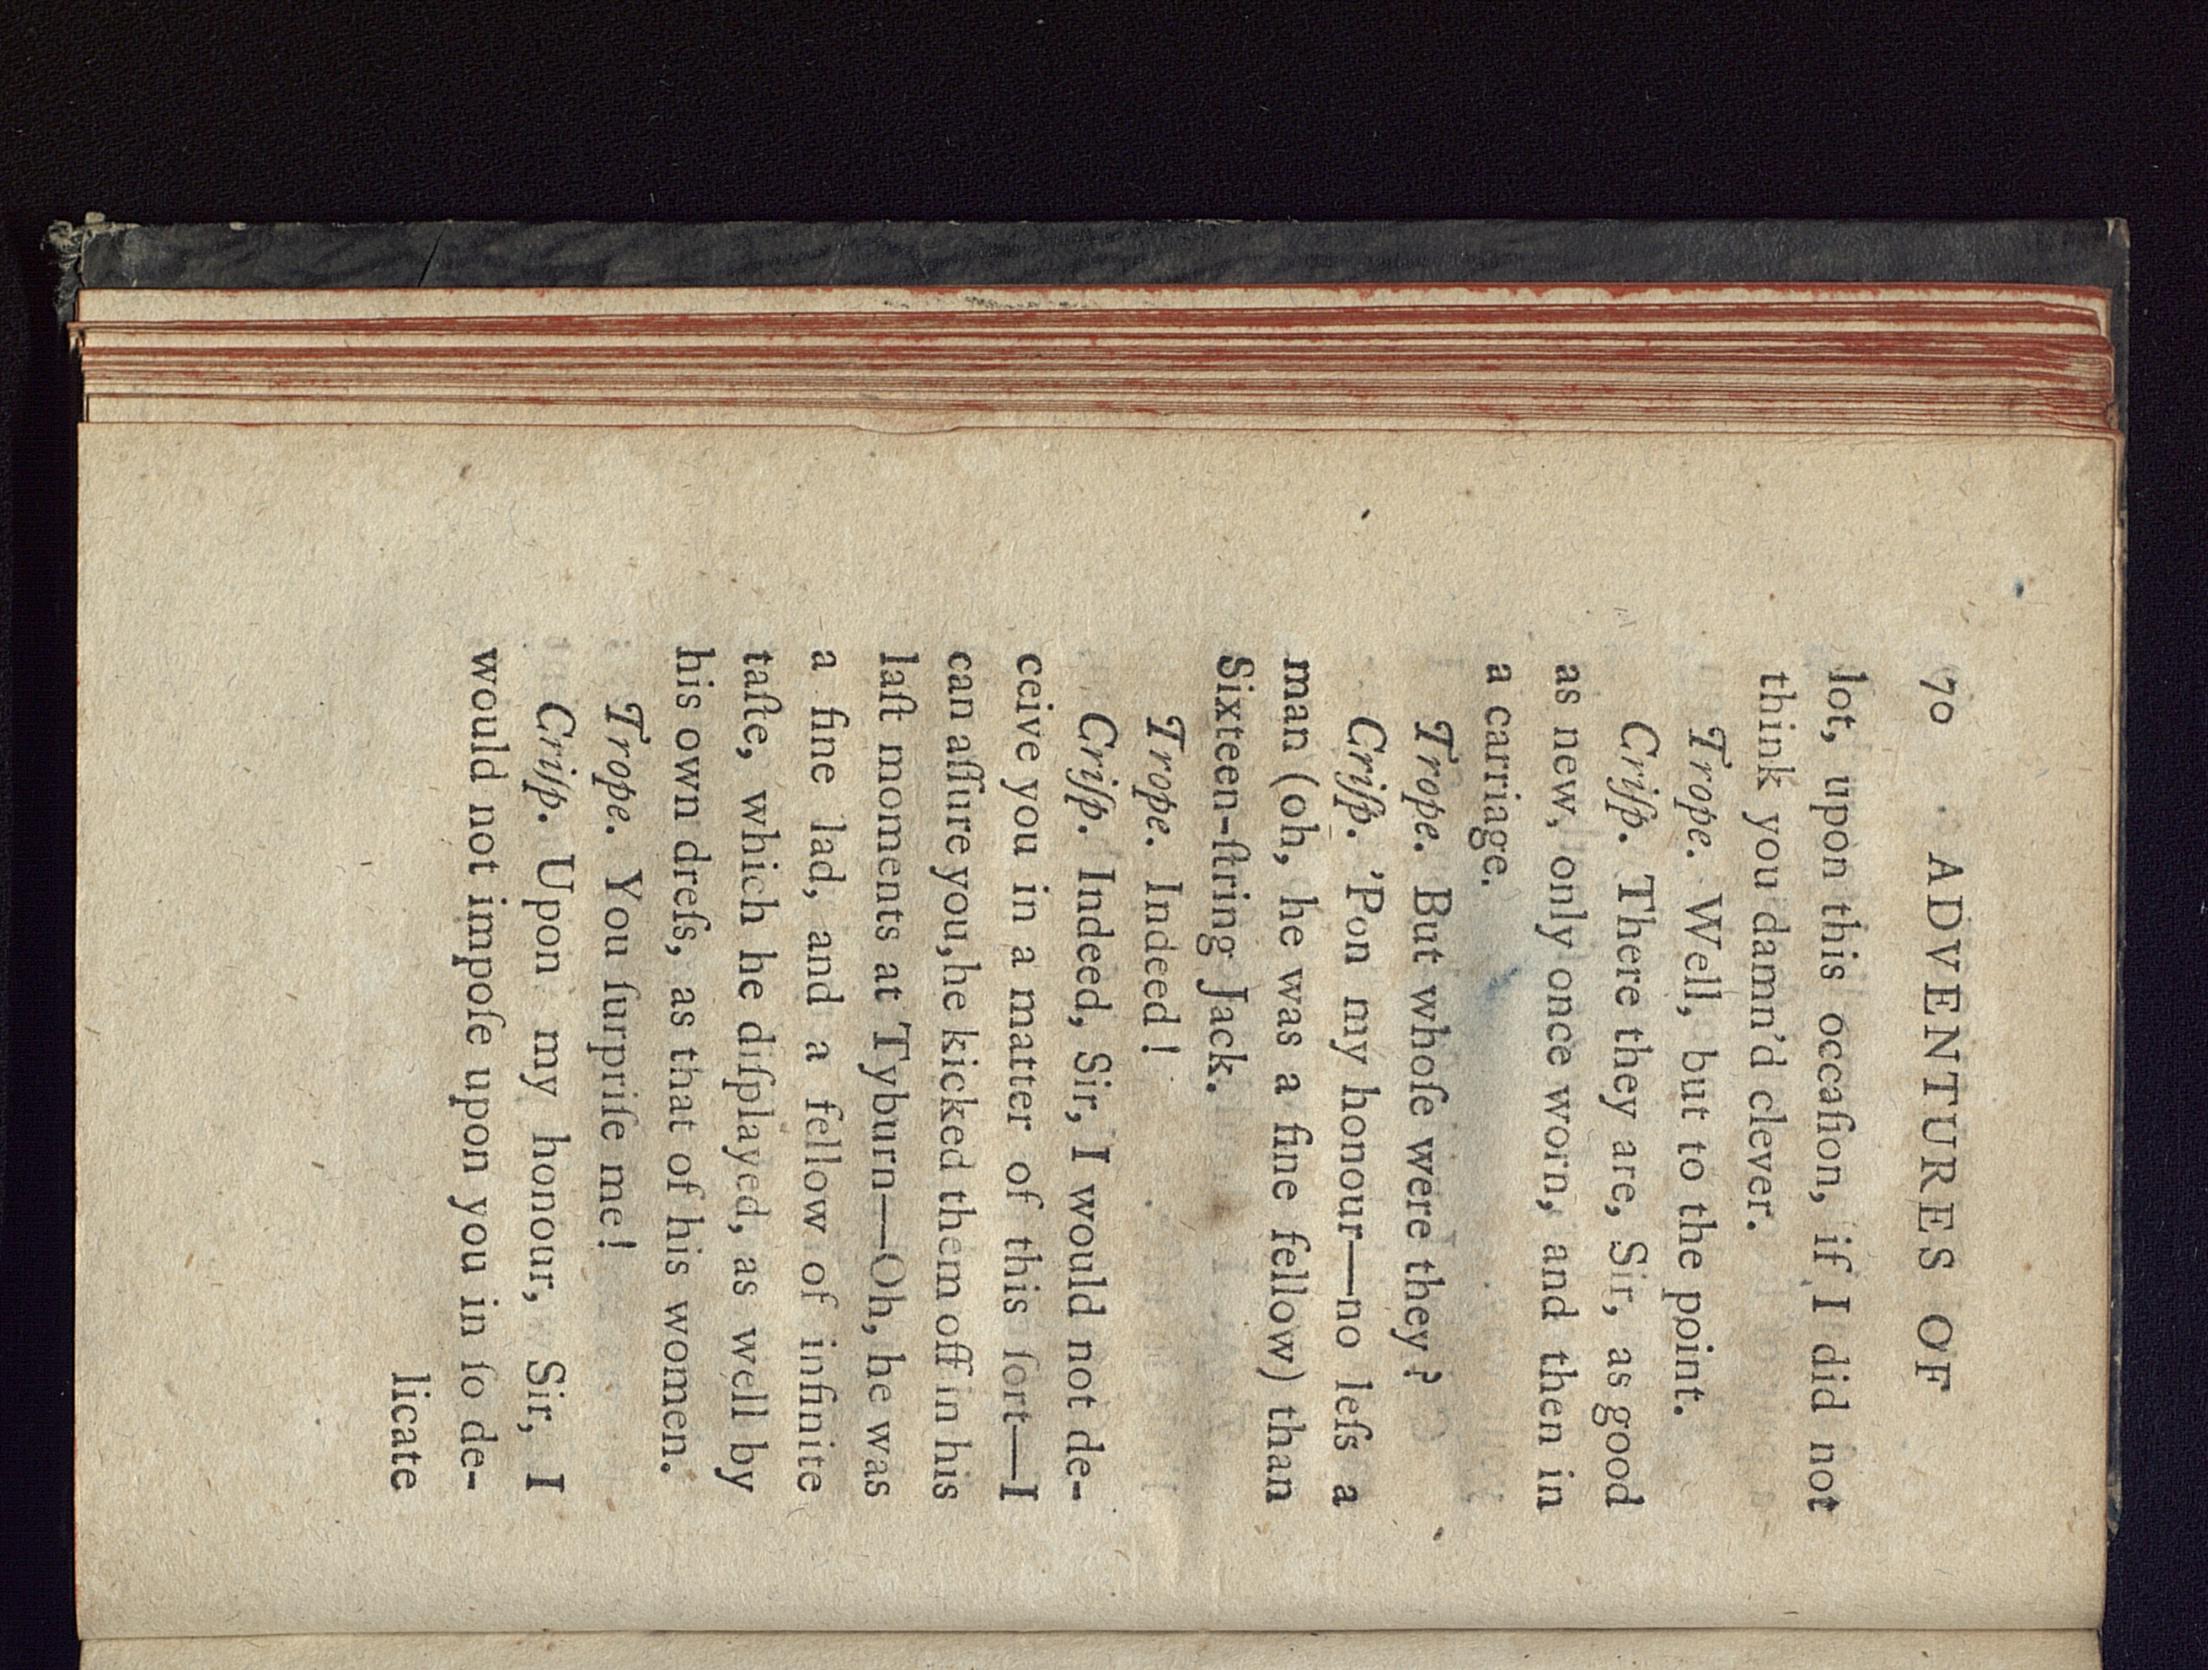 70 ADVENTURES OF
lot, upon this occaſion, if I did not
think you damn'd clever.
Trope. Well, but to the point.
Criſp. There they are, Sir, as good
as new, only once worn, and then in
a carriage.
Trope. But whoſe were they?
Criſp. 'Pon my honour—no leſs a
man (oh, he was a fine fellow) than
Sixteen-ſtring Jack.
Trope. Indeed!
Criſp. Indeed, Sir, I would not de-
ceive you in a matter of this ſort—I
can aſſure you, he kicked them off in his
laſt moments at Tyburn—Oh, he was
a fine lad, and a fellow of infinite
taſte, which he diſplayed, as well by
his own dreſs, as that of his women.
Trope. You ſurpriſe me!
Criſp. Upon my honour, Sir, I
would not impoſe upon you in ſo de-
licate